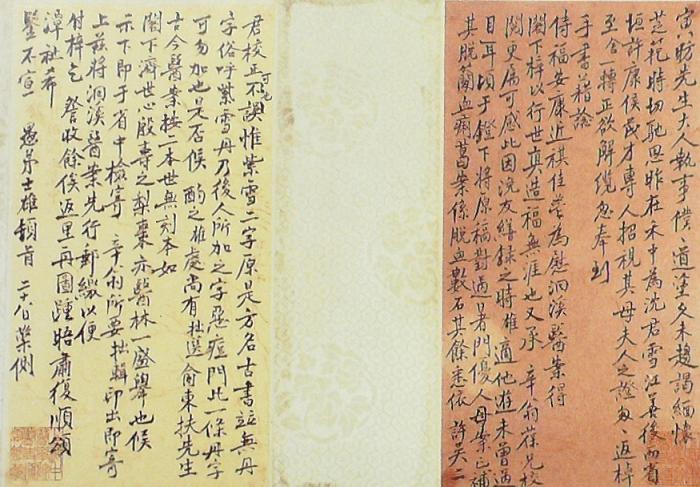 寅昉先生大人執事僕一道登夕未趨謁緬懷
芝範時切馳思昨在禾中為沈君雪江善後而省
垣許康侯茂才專人招視其母夫人之證匆匆返棹
至舍一轉正欲解纜忽奉到
手書藉諗
侍福安康近祺佳鬯為慰洄溪醫案得
閣下梓以行世真造福無涯也又承辛翁葆兄校
閱更屬可感此因浣友繕錄之時雄適他遊未曾過
目耳頃于鐙下將原稿對過者門優人母案已補
其脫簡血痢葛案係脫血數石其餘悉依許吴二
君校正可也不誤惟紫雪二字原是方名古書並無丹
字俗呼紫雪丹乃後人所加之字惡痘門此一條丹字
可勿加也是否候酌之雄處尚有拙選俞東扶先生
古今醫案按一本世無刻本如
閣下濟世心殷壽之梨棗亦醫林一盛舉也候
示下即于省中檢寄辛翁所要拙輯印出即寄
上茲將洄溪醫案先行郵繳以便
付梓乞詧收餘俟返里再圖踵晤肅復順頌
潭祉希
鑒不宣 愚弟士雄頓首 二十八日藥側